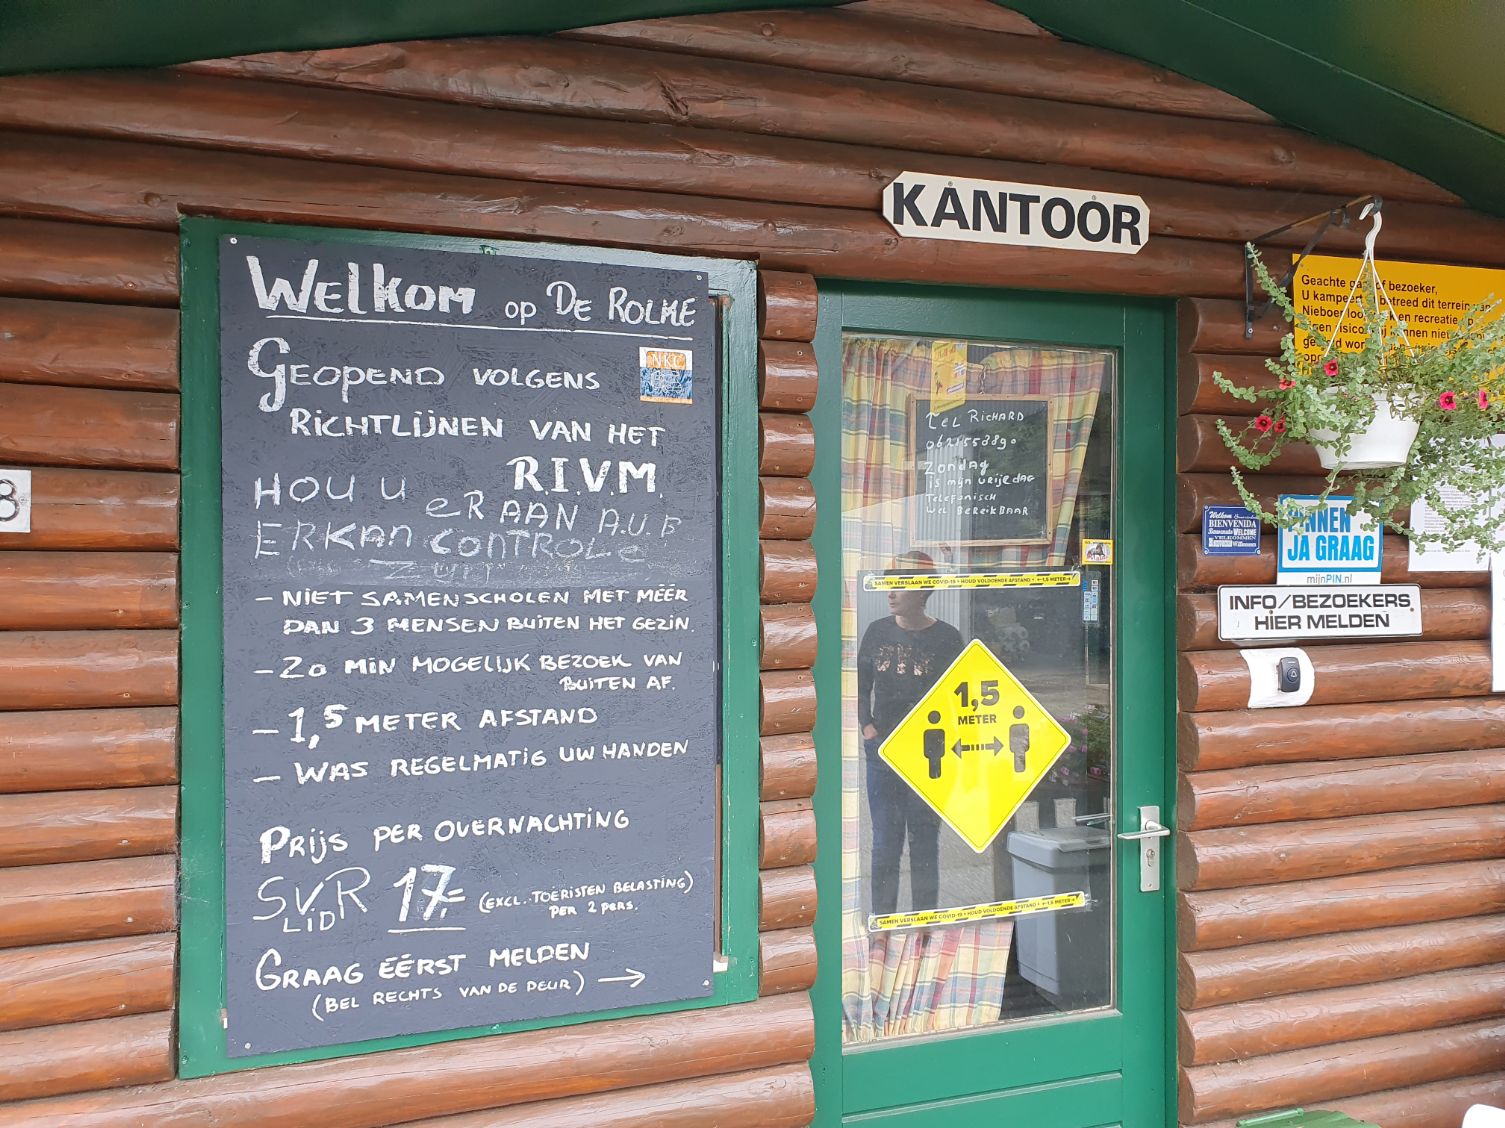 WELKOM OP DE ROLKE
GEOPEND VOLGENS
NKC
RICHTLIJNEN VAN HET
R.I.V.M.
HOU U ER AAN A.U.B
ER KAN CONTROLE
ZIJN
- NIET SAMENSCHOLEN MET MÉÉR
DAN 3 MENSEN BUITEN HET GEZIN.
- 20 MIN MOGELIJK BEZOEK VAN
BUITEN AF.
- 1,5 METER AFSTAND
- WAS REGELMATIG UW HANDEN
PRIJS PER OVERNACHTING
SVR LID 17,= (EXCL. TOERISTEN BELASTING)
PER 2 PERS.
GRAAG ÉÉRST MELDEN
(BEL RECHTS VAN DE DEUR) →
8
KANTOOR
TEL RICHARD
ZONDAG
IS MIJN VRIJE DAG
TELEFONISCH
WEL BEREIKBAAR
SAMEN VERSLAAN WE COVID-19 • HOUD VOLDOENDE AFSTAND • ←1,5 METER→
1,5
METER
SAMEN VERSLAAN WE COVID-19 • HOUD VOLDOENDE AFSTAND • ←1,5 METER→
Geachte gast of bezoeker,
U kampeert betreed dit terrein van
Nieboer en recreatie op
eigen risico. kunnen niet
Welkom
BIENVENIDA
WELCOME
VELKOMMEN
PINNEN
JA GRAAG
mijnPIN.nl
INFO/BEZOEKERS
HIER MELDEN